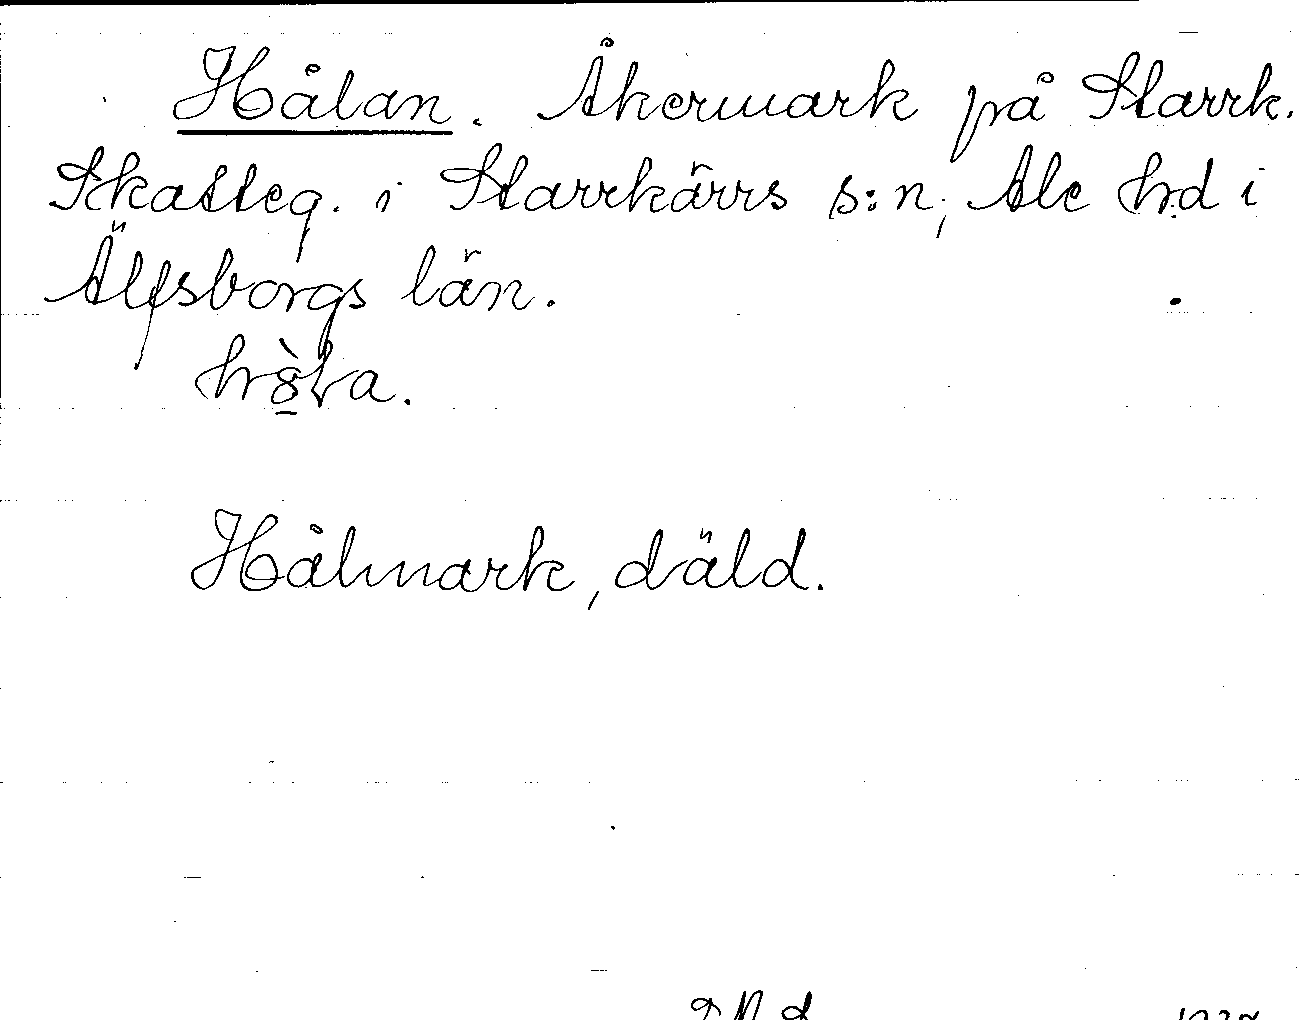 Hålan. Åkermark på Starrk.
Skatteg. i Starrkärrs s:n, Ale h:d i
Älfsborgs län.
Hålmark, däld.